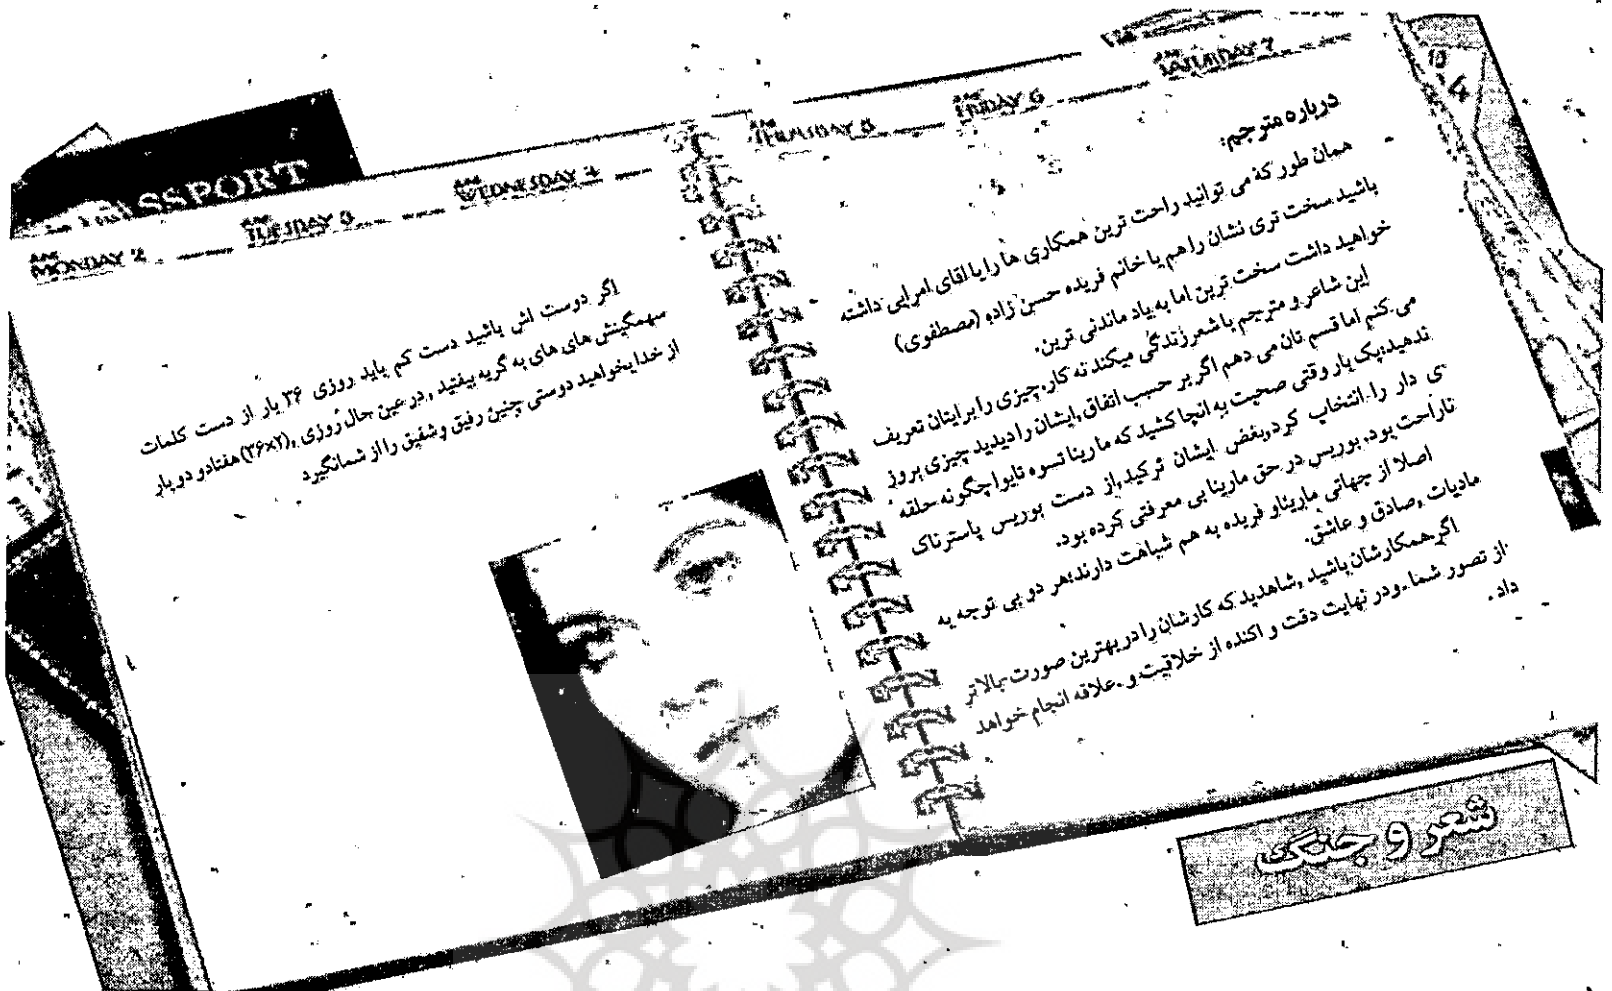 PASSPORT
MONDAY 2
TUESDAY 3
WEDNESDAY 4
THURSDAY 5
FRIDAY 6
SATURDAY 7
درباره مترجم:
همان طور که می توانید راحت ترین همکاری ها را با اقای امرایی داشته
باشید سخت تری نشان را هم با خانم فریده حسن زاده (مصطفوی)
خواهید داشت سخت ترین اما به یاد ماندنی ترین.
این شاعر و مترجم با شعر زندگی میکند نه کار، چیزی را برایتان تعریف
می کنم اما قسم تان می دهم اگر بر حسب اتفاق، ایشان را دیدید چیزی بروز
ندهید؛ یک بار وقتی صحبت به انجا کشید که مارینا تسوه تایوا چگونه حلقه
ی دار را انتخاب کرد، بغض ایشان ترکید، از دست بوریس پاسترناک
ناراحت بود، بوریس در حق مارینا بی معرفتی کرده بود.
اصلا از جهاتی مارینا و فریده به هم شباهت دارند؛ هر دو بی توجه به
مادیات ,صادق و عاشق.
اگر همکارشان باشید ,شاهدید که کارشان را در بهترین صورت بالاتر
از تصور شما .ودر نهایت دقت و اکنده از خلاقیت و .علاقه انجام خواهد
داد .
اگر دوست اش باشید دست کم باید روزی ۳۶ بار از دست کلمات
سهمگینش های های به گریه بیفتید , در عین حال روزی ,(۳۶×۲) هفتادو دو بار
از خدا بخواهید دوستی چنین رفیق وشفیق را از شمانگیرد
شعر و جنگ